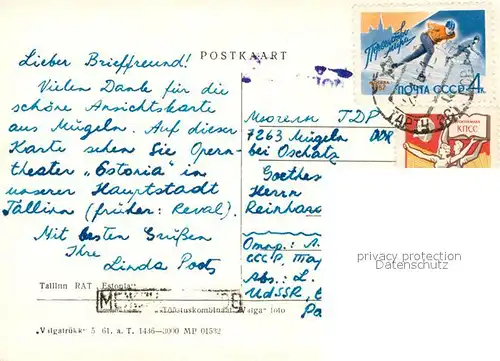 POSTKAART
Lieber Brieffreund!
Vielen Dank für die
schöne Ansichtskarte
aus Mügeln. Auf dieser
Karte sehen Sie Opern-
theater „Estonia" in
unserer Hauptstadt
Tallinn (früher: Reval).
Mit besten Grüßen
Ihre
Linda Poots
Tallinn RAT „Estonia"
"Valgatrükk" 5 61. a. T. 1436—3000 MP 01532
foto
Первенство
мира
МОСКВА
1962
ПОЧТА СССР 4к
КПСС
Мюгельн ГДР
7263 Mügeln DDR
bei Oschatz
Goethes
Herrn
Reinhar
Отпр.: Л.
СССР,
Abs.: L.
UdSSR,
privacy protection